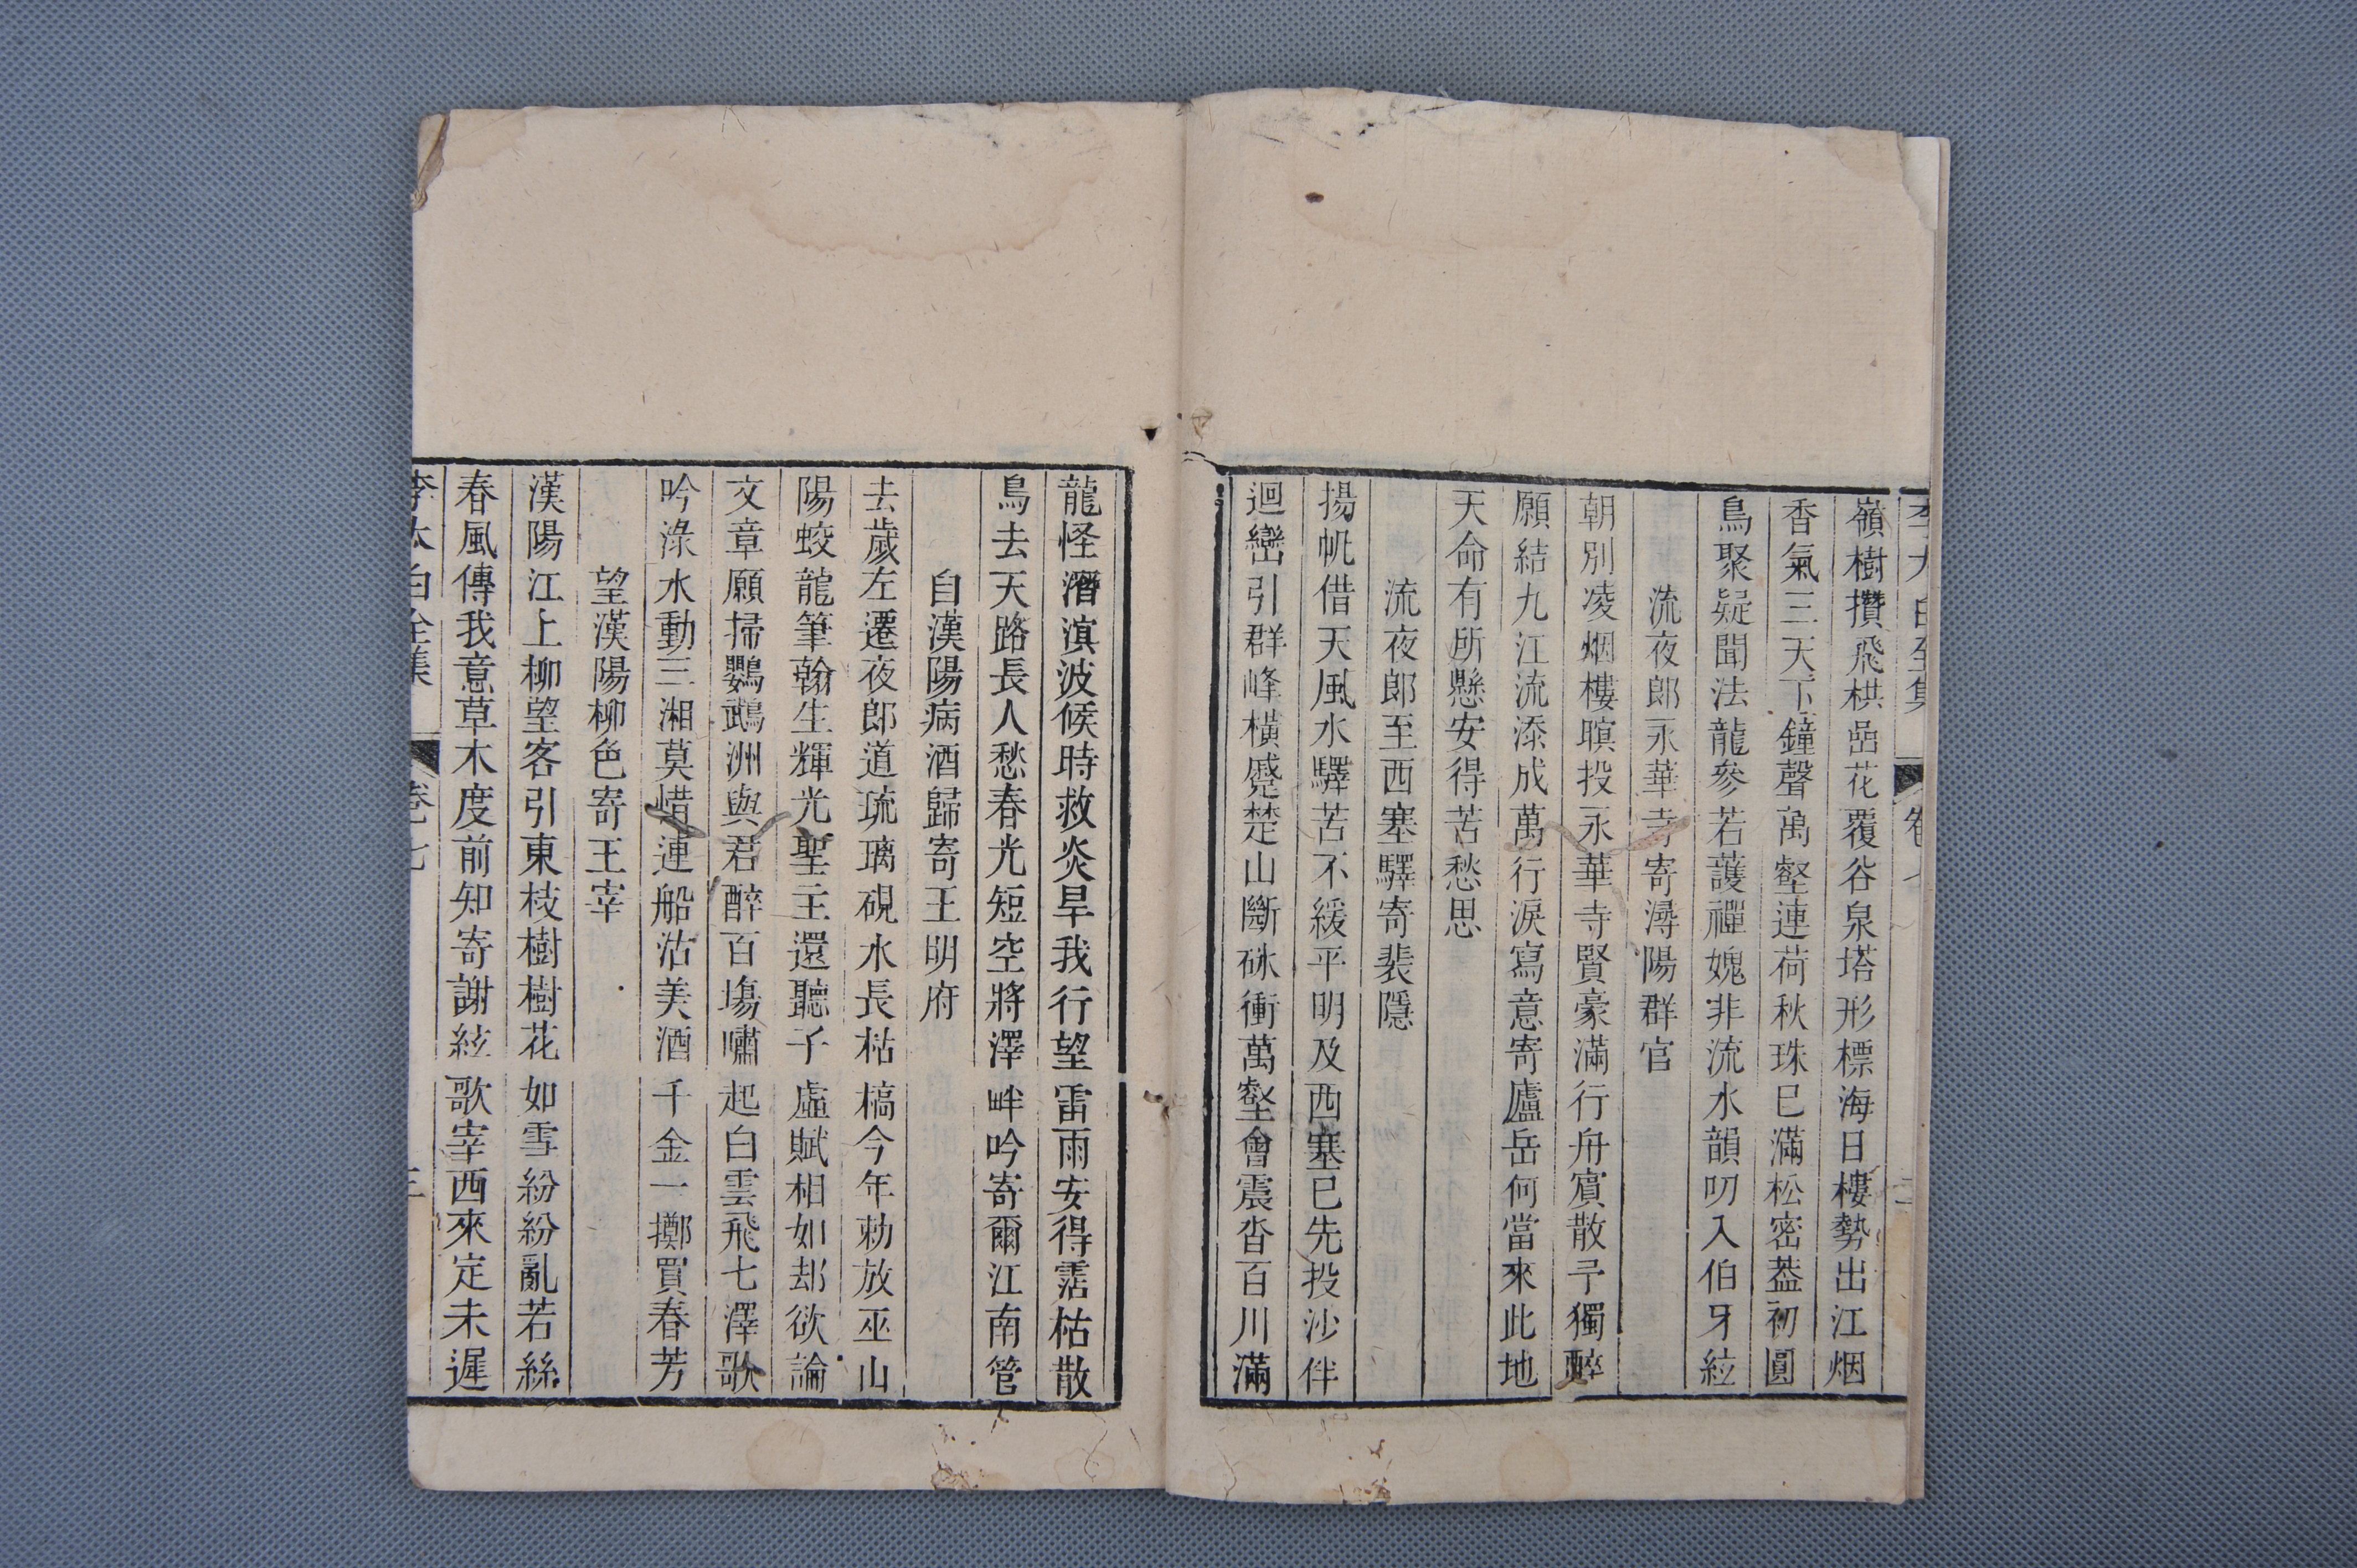 李太白全集 卷七 二
嶺樹攢飛栱嵒花覆谷泉塔形標海日樓勢出江烟
香氣三天下鐘聲萬壑連荷秋珠已滿松密葢初圓
鳥聚疑聞法龍參若護禪媿非流水韻叨入伯牙絃
流夜郎永華寺寄潯陽群官
朝別凌烟樓暝投永華寺賢豪滿行舟賓散予獨醉
願結九江流添成萬行淚寫意寄廬岳何當來此地
天命有所懸安得苦愁思
流夜郎至西塞驛寄裴隱
揚帆借天風水驛苦不緩平明及西塞已先投沙伴
迴巒引群峰橫蹙楚山斷砯衝萬壑會震沓百川滿
龍怪潛溟波候時救炎旱我行望雷雨安得霑枯散
鳥去天路長人愁春光短空將澤畔吟寄爾江南管
自漢陽病酒歸寄王明府
去歲左遷夜郎道琉璃硯水長枯槁今年勅放巫山
陽蛟龍筆翰生輝光聖主還聽子虛賦相如却欲論
文章願掃鸚鵡洲與君醉百場嘯起白雲飛七澤歌
吟淥水動三湘莫惜連船沽美酒千金一擲買春芳
望漢陽柳色寄王宰
漢陽江上柳望客引東枝樹樹花如雪紛紛亂若絲
春風傳我意草木度前知寄謝絃歌宰西來定未遲
李太白全集 卷七 三